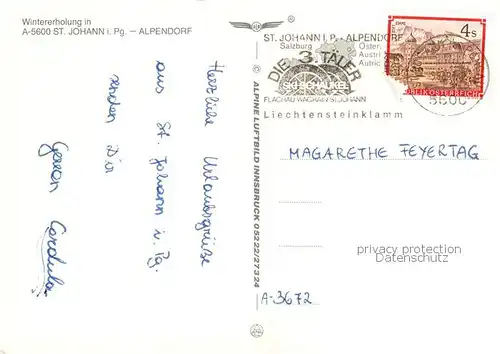 Wintererholung in
A-5600 ST. JOHANN i. Pg. – ALPENDORF
Herzliche Urlaubsgrüße
aus St. Johann i. Pg.
senden Dir
Cordula
© ALPINE LUFTBILD INNSBRUCK 05222/27324
ST. JOHANN I. P. - ALPENDORF
Salzburg
DIE 3 TÄLER
FLACHAU WAGRAIN ST. JOHANN
Liechtensteinklamm
4 S
REPUBLIK ÖSTERREICH
5600
MAGARETHE FEYERTAG
privacy protection
Datenschutz
A-3672